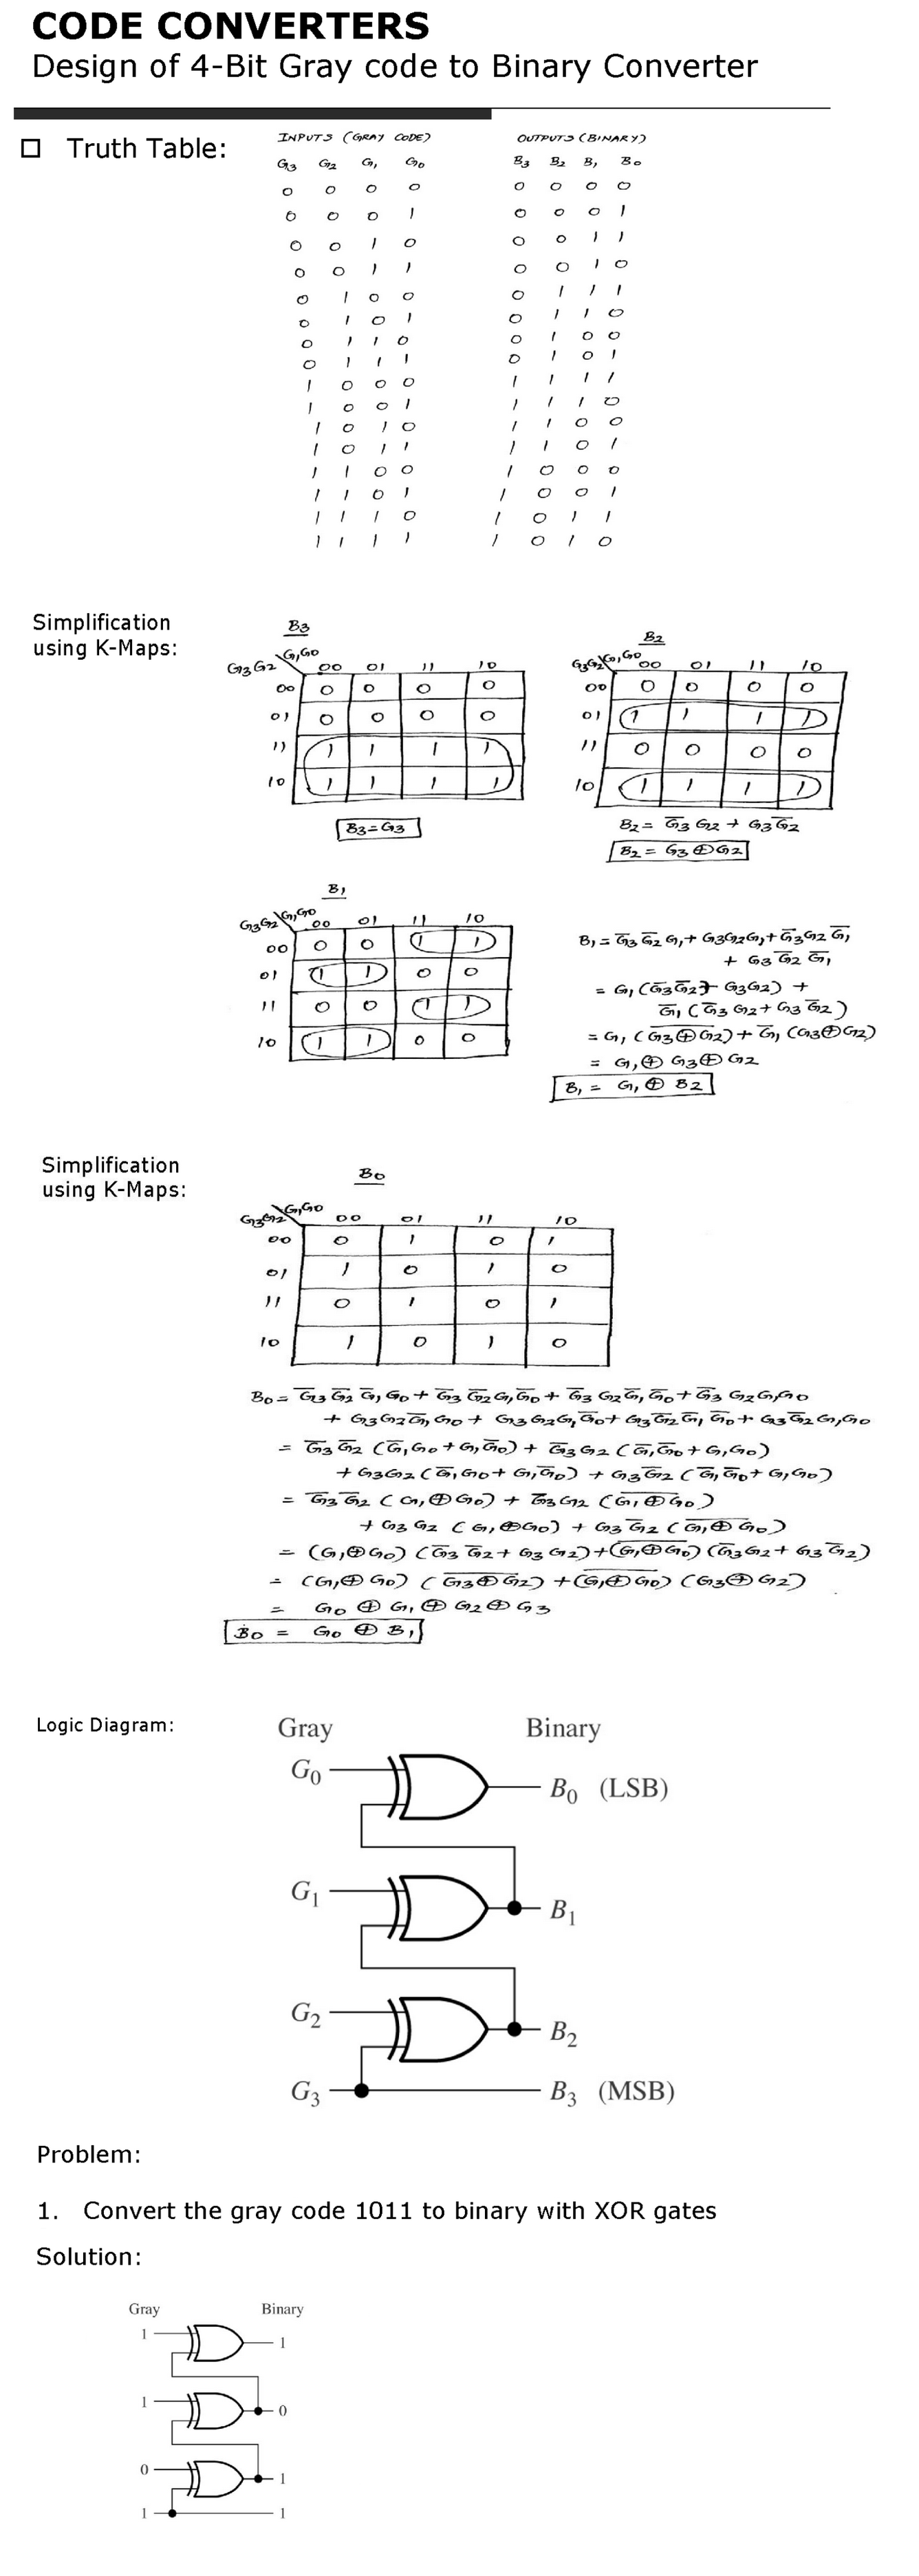 CODE CONVERTERS
Design of 4-Bit Gray code to Binary Converter
Truth Table:
INPUTS (GRAY CODE) OUTPUTS (BINARY)
G3 G2 G1 G0 B3 B2 B1 B0
0 0 0 0 0 0 0 0
0 0 0 1 0 0 0 1
0 0 1 0 0 0 1 1
0 0 1 1 0 0 1 0
0 1 0 0 0 1 1 1
0 1 0 1 0 1 1 0
0 1 1 0 0 1 0 0
0 1 1 1 0 1 0 1
1 0 0 0 1 1 1 1
1 0 0 1 1 1 1 0
1 0 1 0 1 1 0 0
1 0 1 1 1 1 0 1
1 1 0 0 1 0 0 0
1 1 0 1 1 0 0 1
1 1 1 0 1 0 1 1
1 1 1 1 1 0 1 0
Simplification
using K-Maps:
B3
G3G2 G1G0
00 01 11 10
00 0 0 0 0
01 0 0 0 0
11 1 1 1 1
10 1 1 1 1
B3=G3
B2
G3G2 G1G0
00 01 11 10
00 0 0 0 0
01 1 1 1 1
11 0 0 0 0
10 1 1 1 1
B2 = G̅3 G2 + G3 G̅2
B2 = G3 ⊕ G2
B1
G3G2 G1G0
00 01 11 10
00 0 0 1 1
01 1 1 0 0
11 0 0 1 1
10 1 1 0 0
B1 = G̅3 G̅2 G1 + G3G2G1 + G̅3G2 G̅1
+ G3 G̅2 G̅1
= G1 (G̅3G̅2 + G3G2) +
G̅1 (G̅3 G2 + G3 G̅2)
= G1 (\overline{G3⊕G2}) + G̅1 (G3⊕G2)
= G1 ⊕ G3 ⊕ G2
B1 = G1 ⊕ B2
Simplification
using K-Maps:
B0
G3G2 G1G0
00 01 11 10
00 0 1 0 1
01 1 0 1 0
11 0 1 0 1
10 1 0 1 0
B0 = G̅3 G̅2 G̅1 G0 + G̅3 G̅2 G1 G̅0 + G̅3 G2 G̅1 G̅0 + G̅3 G2 G1 G0
+ G3 G2 G̅1 G0 + G3 G2 G1 G̅0 + G3 G̅2 G̅1 G̅0 + G3 G̅2 G1 G0
= G̅3 G̅2 (G̅1 G0 + G1 G̅0) + G̅3 G2 (G̅1 G̅0 + G1 G0)
+ G3G2 (G̅1 G0 + G1 G̅0) + G3 G̅2 (G̅1 G̅0 + G1 G0)
= G̅3 G̅2 (G1 ⊕ G0) + G̅3 G2 (\overline{G1 ⊕ G0})
+ G3 G2 (G1 ⊕ G0) + G3 G̅2 (\overline{G1 ⊕ G0})
= (G1 ⊕ G0) (G̅3 G̅2 + G3 G2) + (\overline{G1 ⊕ G0}) (G̅3 G2 + G3 G̅2)
= (G1 ⊕ G0) (\overline{G3 ⊕ G2}) + (\overline{G1 ⊕ G0}) (G3 ⊕ G2)
= G0 ⊕ G1 ⊕ G2 ⊕ G3
B0 = G0 ⊕ B1
Logic Diagram:
Gray Binary
G0 B0 (LSB)
G1 B1
G2 B2
G3 B3 (MSB)
Problem:
1. Convert the gray code 1011 to binary with XOR gates
Solution:
Gray Binary
1 1
1 0
0 1
1 1